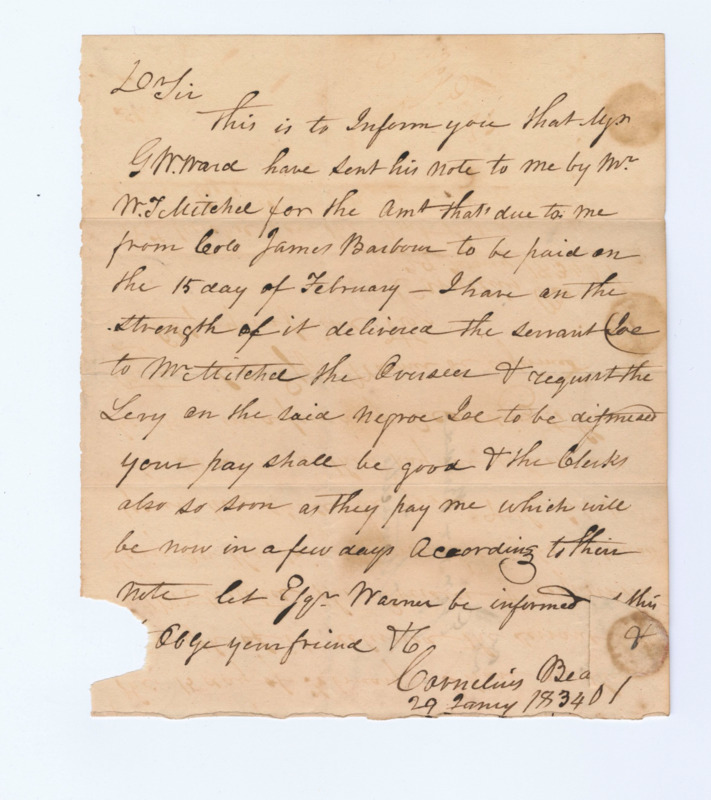 Dr Sir
This is to Inform you that Mr
G W. Ward have sent his note to me by Mr
W. T Mitchel for the Amt thats due to me
from Colo James Barbour to be paid on
the 15 day of February — I have on the
strength of it delivered the servant Joe
to Mr Mitchel the Overseer & request the
Levy on the said negroe Joe to be dismised
your pay shall be good & the Clerks
also so soon as they pay me which will
be now in a few days According to their
note let Esqr Warner be informed this
&
Oblge your friend &C
Cornelius Bea
29 Jany 1834